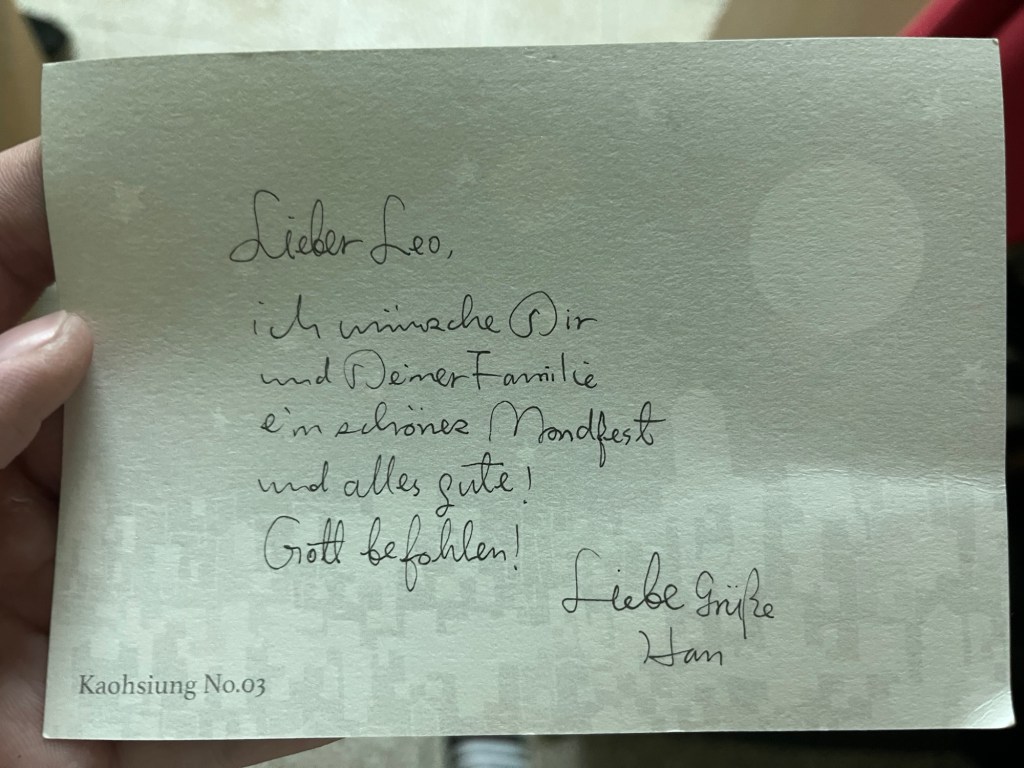 Lieber Leo,
ich wünsche Dir
und Deiner Familie
ein schönes Mondfest
und alles gute!
Gott befohlen!
Liebe Grüße
Han
Kaohsiung No.03